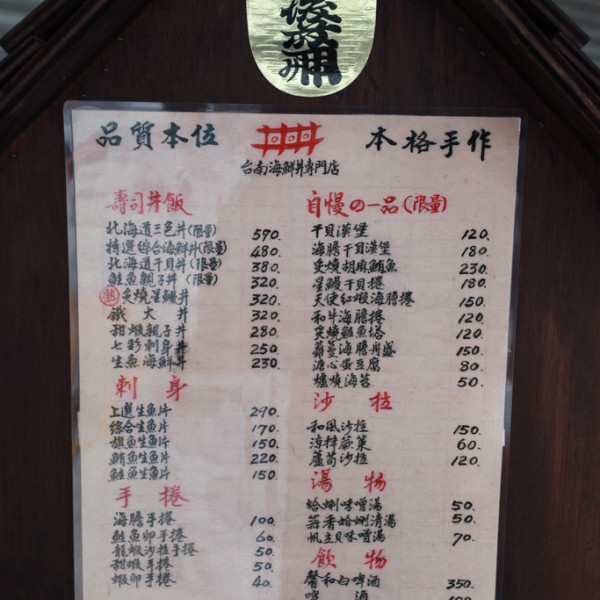 品質本位
本格手作
台南海鮮丼專門店
壽司丼飯
北海道三色丼(限量) 570.
精選綜合海鮮丼(限量) 480.
北海道干貝丼(限量) 380.
鮭魚親子丼(限量) 320.
炙燒星鰻丼 320.
鐵火丼 320.
甜蝦親子丼 280.
七彩刺身丼 250.
生魚海鮮丼 230.
刺身
上選生魚片 290.
綜合生魚片 170.
旗魚生魚片 150.
鮪魚生魚片 220.
鮭魚生魚片 150.
手捲
海膽手捲 100.
鮭魚卵手捲 60.
龍蝦沙拉手捲 50.
甜蝦手捲 50.
蝦卵手捲 40.
自慢の一品(限量)
干貝漢堡 120.
海膽干貝漢堡 180.
炙燒胡麻鮪魚 230.
星鰻干貝捲 180.
天使紅蝦海膽捲 150.
和牛海膽捲 120.
炙燒鮭魚塔 120.
海膽丹盛 150.
溏心蛋豆腐 80.
爐燒海苔 50.
沙拉
和風沙拉 150.
涼拌蕨菜 60.
蘆筍沙拉 120.
湯物
蛤蜊味噌湯 50.
蒜香蛤蜊清湯 50.
帆立貝味噌湯 70.
飲物
馨和白啤酒 350.
啤酒 100